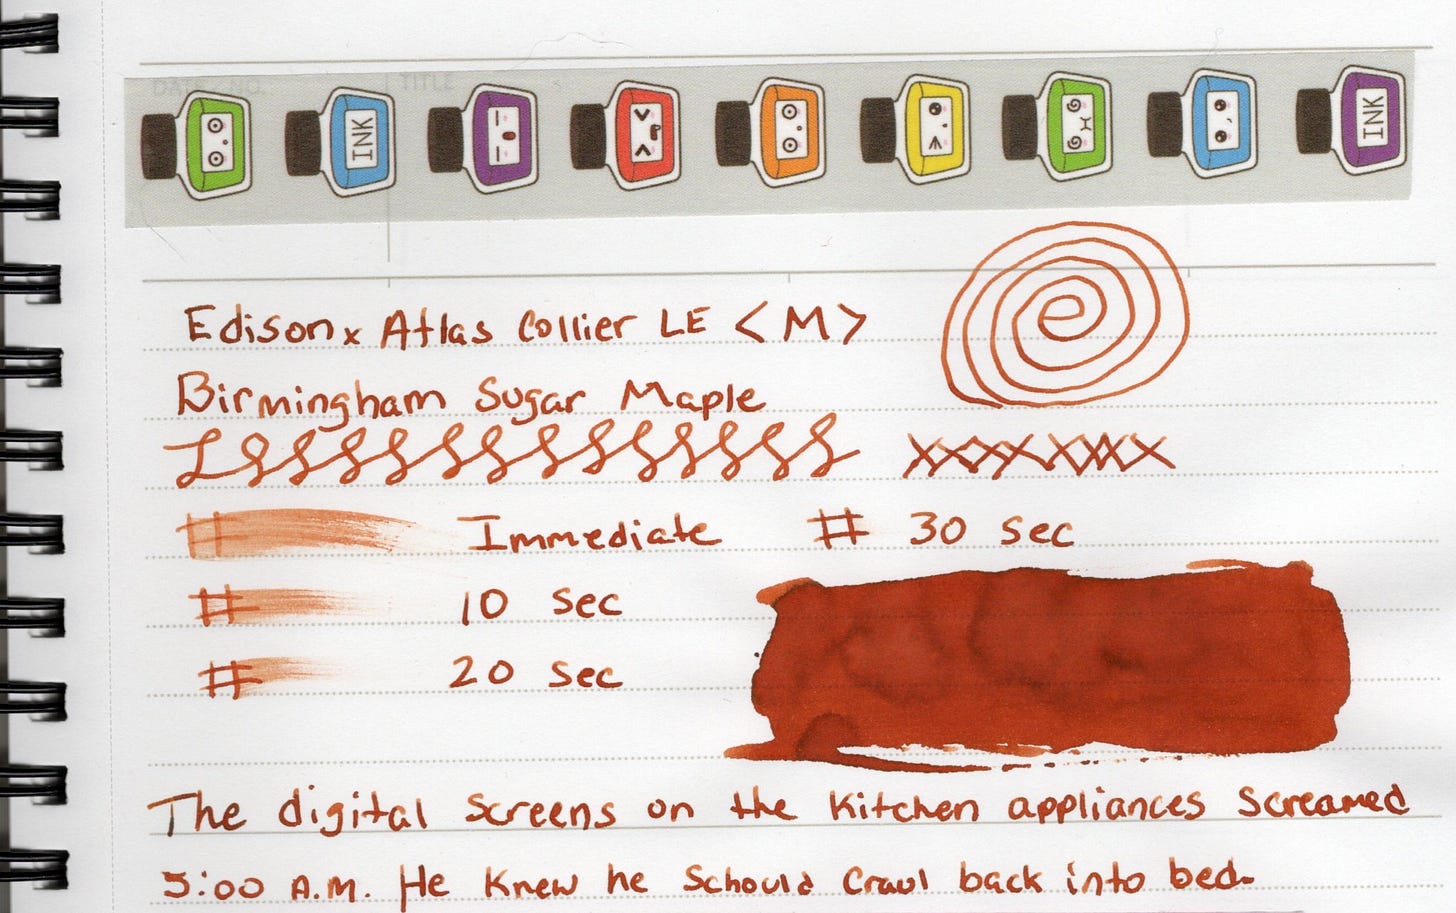 DATE · NO.
TITLE
INK
INK
Edison x Atlas Collier LE <M>
Birmingham Sugar Maple
XXXXXXXX
# Immediate # 30 Sec
# 10 Sec
# 20 Sec
The digital Screens on the Kitchen appliances Screamed
5:00 A.M. He Knew he Schould Crawl back into bed.